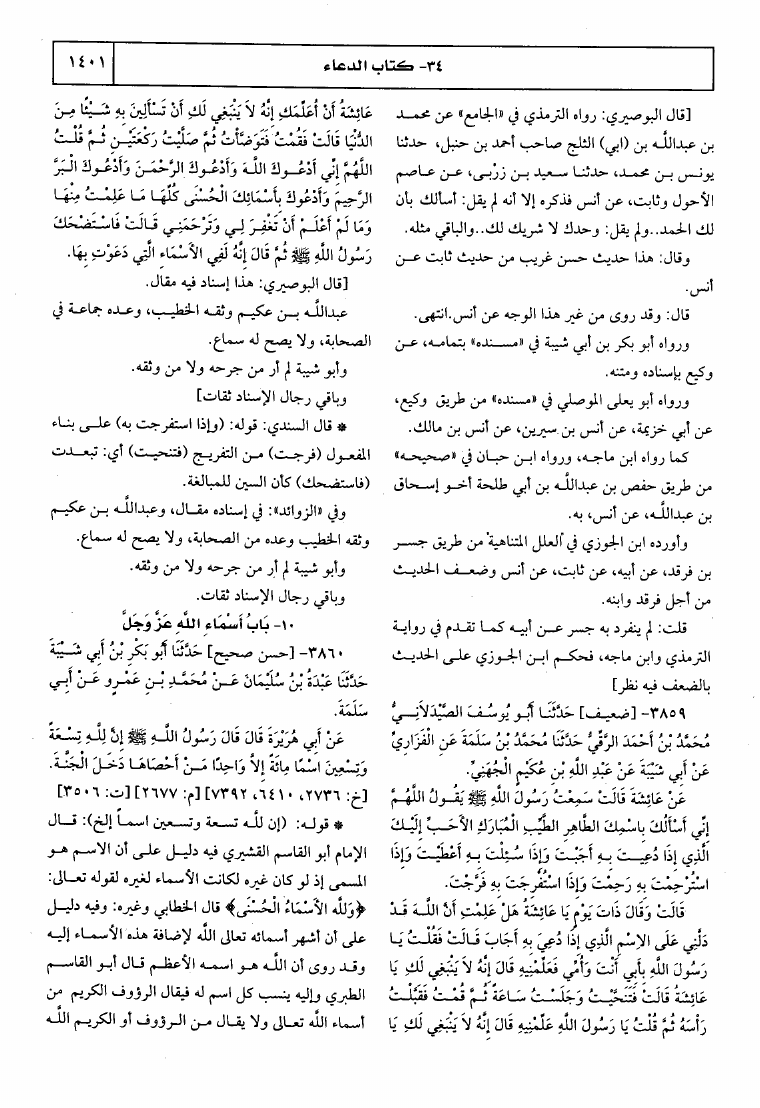 ٣٤- كتاب الدعاء
١٤٠١
[قال البوصيري: رواه الترمذي في «الجامع» عن محمد
بن عبدالله بن (ابي) الثلج صاحب أحمد بن حنبل، حدثنا
يونس بن محمد، حدثنا سعيد بن زربى، عن عاصم
الأحول وثابت، عن أنس فذكره إلا أنه لم يقل: أسألك بأن
لك الحمد..ولم يقل: وحدك لا شريك لك..والباقي مثله.
وقال: هذا حديث حسن غريب من حديث ثابت عن
أنس.
قال: وقد روى من غير هذا الوجه عن أنس.انتهى.
ورواه أبو بكر بن أبي شيبة في «مسنده» بتمامه، عن
وكيع بإسناده ومتنه.
ورواه أبو يعلى الموصلي في «مسنده» من طريق وكيع،
عن أبي خزيمة، عن أنس بن سيرين، عن أنس بن مالك.
كما رواه ابن ماجه، ورواه ابن حبان في «صحيحه»
من طريق حفص بن عبدالله بن أبي طلحة أخو إسحاق
بن عبدالله، عن أنس، به.
وأورده ابن الجوزي في العلل المتناهية من طريق جسر
بن فرقد، عن أبيه، عن ثابت، عن أنس وضعف الحديث
من أجل فرقد وابنه.
قلت: لم ينفرد به جسر عن أبيه كما تقدم في رواية
الترمذي وابن ماجه، فحكم ابن الجوزي على الحديث
بالضعف فيه نظر]
٣٨٥٩- [ضعيف] حَدَّثَنَا أَبُو يُوسُفَ الصَّيْدَلاَنِيُّ
مُحَمَّدُ بْنُ أَحْمَدَ الرَّقِّيُّ حَدَّثَنَا مُحَمَّدُ بْنُ سَلَمَةَ عَنِ الْفَزَارِيِّ
عَنْ أَبِي شَيْبَةَ عَنْ عَبْدِ اللَّهِ بْنِ عُكَيْمٍ الْجُهَنِيِّ.
عَنْ عَائِشَةَ قَالَتْ سَمِعْتُ رَسُولَ اللَّهِ ﷺ يَقُولُ اللَّهُمَّ
إِنِّي أَسْأَلُكَ بِاسْمِكَ الطَّاهِرِ الطَّيِّبِ الْمُبَارَكِ الأَحَبِّ إِلَيْكَ
الَّذِي إِذَا دُعِيتَ بِهِ أَجَبْتَ وَإِذَا سُئِلْتَ بِهِ أَعْطَيْتَ وَإِذَا
اسْتُرْحِمْتَ بِهِ رَحِمْتَ وَإِذَا اسْتُفْرِجَتَ بِهِ فَرَّجْتَ.
قَالَتْ وَقَالَ ذَاتَ يَوْمٍ يَا عَائِشَةُ هَلْ عَلِمْتِ أَنَّ اللَّهَ قَدْ
دَلَّنِي عَلَى الاِسْمِ الَّذِي إِذَا دُعِيَ بِهِ أَجَابَ قَالَتْ فَقُلْتُ يَا
رَسُولَ اللَّهِ بِأَبِي أَنْتَ وَأُمِّي فَعَلِّمْنِيهِ قَالَ إِنَّهُ لاَ يَنْبَغِي لَكِ يَا
عَائِشَةُ قَالَتْ فَتَنَحَّيْتُ وَجَلَسْتُ سَاعَةً ثُمَّ قُمْتُ فَقَبَّلْتُ
رَأْسَهُ ثُمَّ قُلْتُ يَا رَسُولَ اللَّهِ عَلِّمْنِيهِ قَالَ إِنَّهُ لاَ يَنْبَغِي لَكِ يَا
عَائِشَةُ أَنْ أُعَلِّمَكِ إِنَّهُ لاَ يَنْبَغِي لَكِ أَنْ تَسْأَلِينَ بِهِ شَيْئًا مِنَ
الدُّنْيَا قَالَتْ فَقُمْتُ فَتَوَضَّأْتُ ثُمَّ صَلَّيْتُ رَكْعَتَيْنِ ثُمَّ قُلْتُ
اللَّهُمَّ إِنِّي أَدْعُوكَ اللَّهَ وَأَدْعُوكَ الرَّحْمَنَ وَأَدْعُوكَ الْبَرَّ
الرَّحِيمَ وَأَدْعُوكَ بِأَسْمَائِكَ الْحُسْنَى كُلِّهَا مَا عَلِمْتُ مِنْهَا
وَمَا لَمْ أَعْلَمْ أَنْ تَغْفِرَ لِي وَتَرْحَمَنِي قَالَتْ فَاسْتَضْحَكَ
رَسُولُ اللَّهِ ﷺ ثُمَّ قَالَ إِنَّهُ لَفِي الأَسْمَاءِ الَّتِي دَعَوْتِ بِهَا.
[قال البوصيري: هذا إسناد فيه مقال.
عبدالله بن عكيم وثقه الخطيب، وعده جماعة في
الصحابة، ولا يصح له سماع.
وأبو شيبة لم أر من جرحه ولا من وثقه.
وباقي رجال الإسناد ثقات]
* قال السندي: قوله: (وإذا استفرجت به) على بناء
المفعول (فرجت) من التفريج (فتنحيت) أي: تبعدت
(فاستضحك) كأن السين للمبالغة.
وفي «الزوائد»: في إسناده مقال، وعبدالله بن عكيم
وثقه الخطيب وعده من الصحابة، ولا يصح له سماع.
وأبو شيبة لم أر من جرحه ولا من وثقه.
وباقي رجال الإسناد ثقات.
١٠- بَابُ أَسْمَاءِ اللَّهِ عَزَّ وَجَلَّ
٣٨٦٠- [حسن صحيح] حَدَّثَنَا أَبُو بَكْرِ بْنُ أَبِي شَيْبَةَ
حَدَّثَنَا عَبْدَةُ بْنُ سُلَيْمَانَ عَنْ مُحَمَّدِ بْنِ عَمْرٍو عَنْ أَبِي
سَلَمَةَ.
عَنْ أَبِي هُرَيْرَةَ قَالَ قَالَ رَسُولُ اللَّهِ ﷺ إِنَّ لِلَّهِ تِسْعَةً
وَتِسْعِينَ اسْمًا مِائَةً إِلاَّ وَاحِدًا مَنْ أَحْصَاهَا دَخَلَ الْجَنَّةَ.
[خ: ٢٧٣٦، ٦٤١٠، ٧٣٩٢] [م: ٢٦٧٧] [ت: ٣٥٠٦]
* قوله: (إن لله تسعة وتسعين اسماً إلخ): قال
الإمام أبو القاسم القشيري فيه دليل على أن الاسم هو
المسمى إذ لو كان غيره لكانت الأسماء لغيره لقوله تعالى:
﴿وَلله الأَسْمَاءُ الْحُسْنَى﴾ قال الخطابي وغيره: وفيه دليل
على أن أشهر أسمائه تعالى الله لإضافة هذه الأسماء إليه
وقد روى أن الله هو اسمه الأعظم قال أبو القاسم
الطبري وإليه ينسب كل اسم له فيقال الرؤوف الكريم من
أسماء الله تعالى ولا يقال من الرؤوف أو الكريم الله